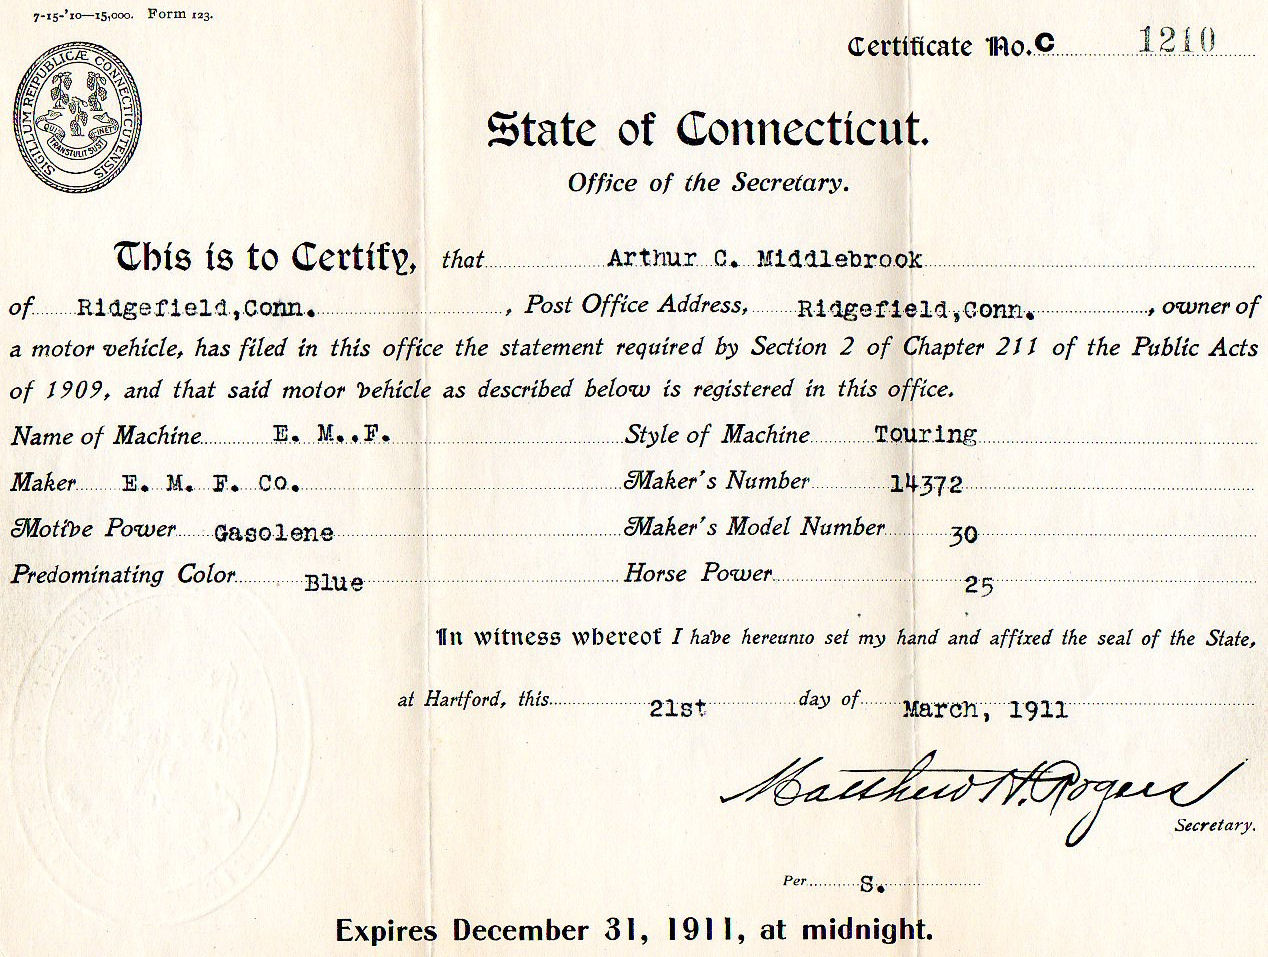 7-15-'10—15,000. Form 123.
Certificate No. C 1210
SIGILLUM REIPUBLICÆ CONNECTICUTENSIS
QUI TRANSTULIT SUSTINET
State of Connecticut.
Office of the Secretary.
This is to Certify, that Arthur C. Middlebrook
of Ridgefield,Conn. , Post Office Address, Ridgefield,Conn. , owner of
a motor vehicle, has filed in this office the statement required by Section 2 of Chapter 211 of the Public Acts
of 1909, and that said motor vehicle as described below is registered in this office.
Name of Machine E. M..F. Style of Machine Touring
Maker E. M. F. Co. Maker's Number 14372
Motive Power Gasolene Maker's Model Number 30
Predominating Color Blue Horse Power 25
In witness whereof I have hereunto set my hand and affixed the seal of the State,
at Hartford, this 21st day of March, 1911
Matthew H. Rogers
Secretary.
Per S.
Expires December 31, 1911, at midnight.